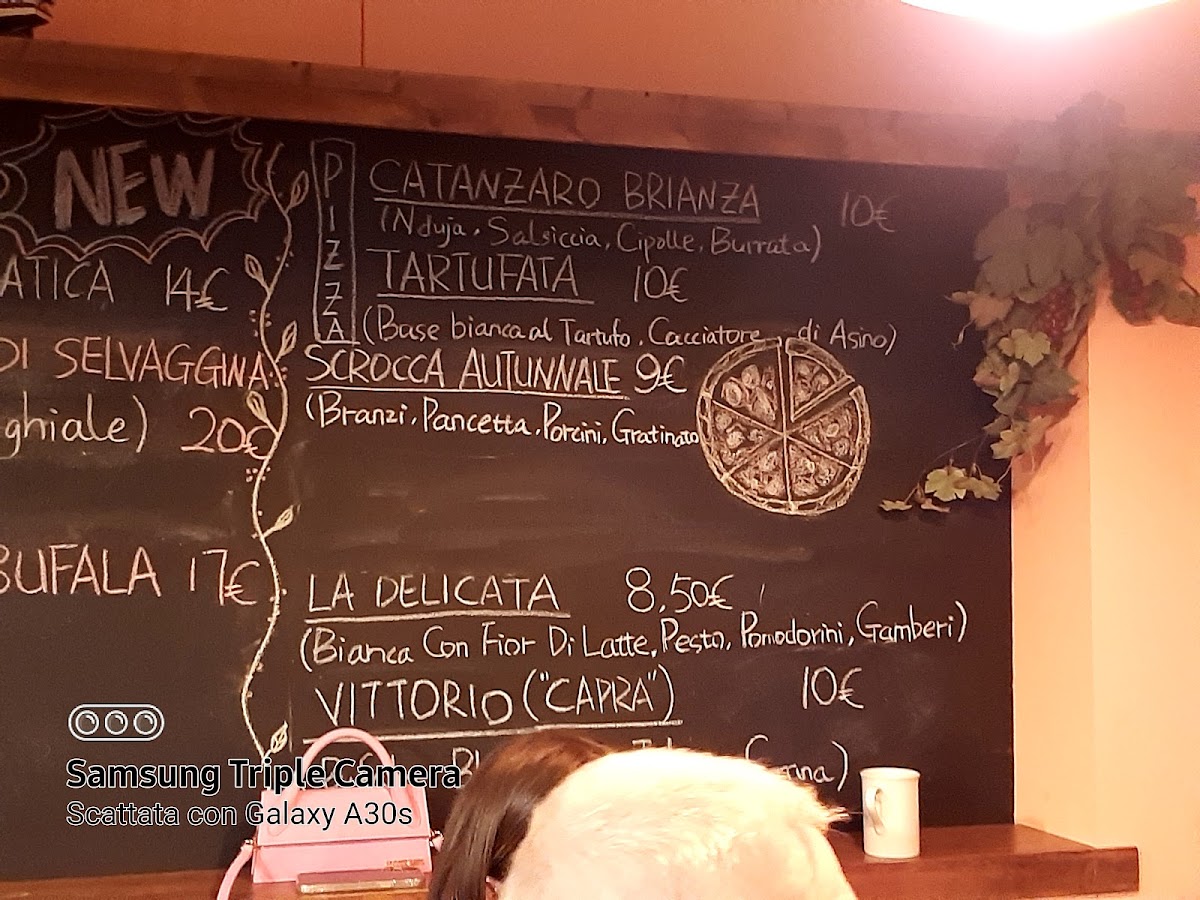 NEW
ATICA 14€
DI SELVAGGINA
ghiale) 20€
BUFALA 17€
PIZZA
CATANZARO BRIANZA 10€
(Nduja, Salsiccia, Cipolle, Burrata)
TARTUFATA 10€
(Base bianca al Tartufo, Cacciatore di Asino)
SCROCCA AUTUNNALE 9€
(Branzi, Pancetta, Porcini, Gratinato
LA DELICATA 8,50€
(Bianca Con Fior Di Latte, Pesto, Pomodorini, Gamberi)
VITTORIO ("CAPRA") 10€
Samsung Triple Camera
Scattata con Galaxy A30s